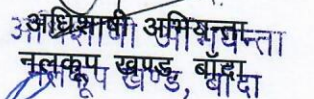 अधिशाषी अभियन्ता
नलकूप खण्ड, बाँदा